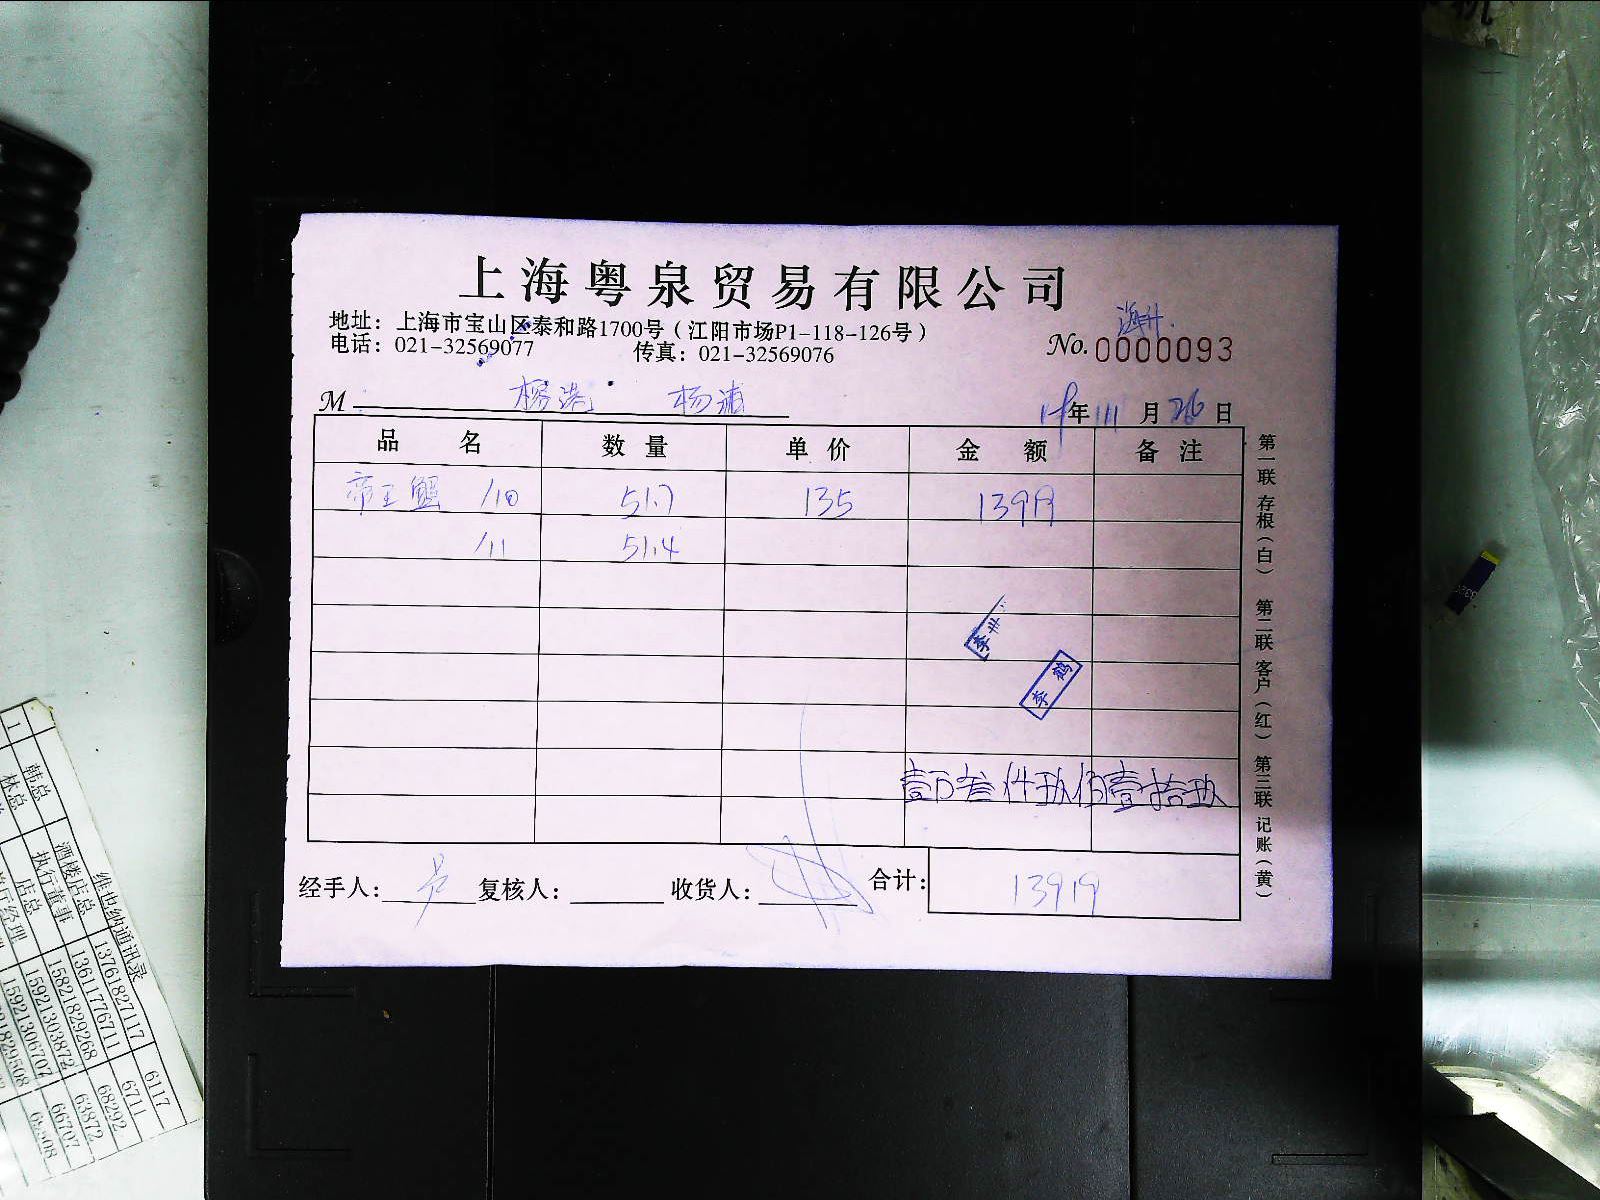 上海粤泉贸易有限公司
地址：上海市宝山区泰和路1700号（江阳市场P1-118-126号）
电话：021-32569077 传真：021-32569076
No.0000093
M 杨浦
年 月 26 日
品名 数量 单价 金额 备注
帝王蟹 /10 51.7 135 13919
/11 51.4
李鹤
壹万叁仟玖佰壹拾玖
经手人： 复核人： 收货人： 合计： 13919
第一联 存根（白） 第二联 客户（红） 第三联 记账（黄）
维也纳通讯录
酒楼店总 13761827117 6117
韩总 执行董事 13611776711 6711
林总 店总 15821829268 68292
15921303872 63872
15921306707 66707